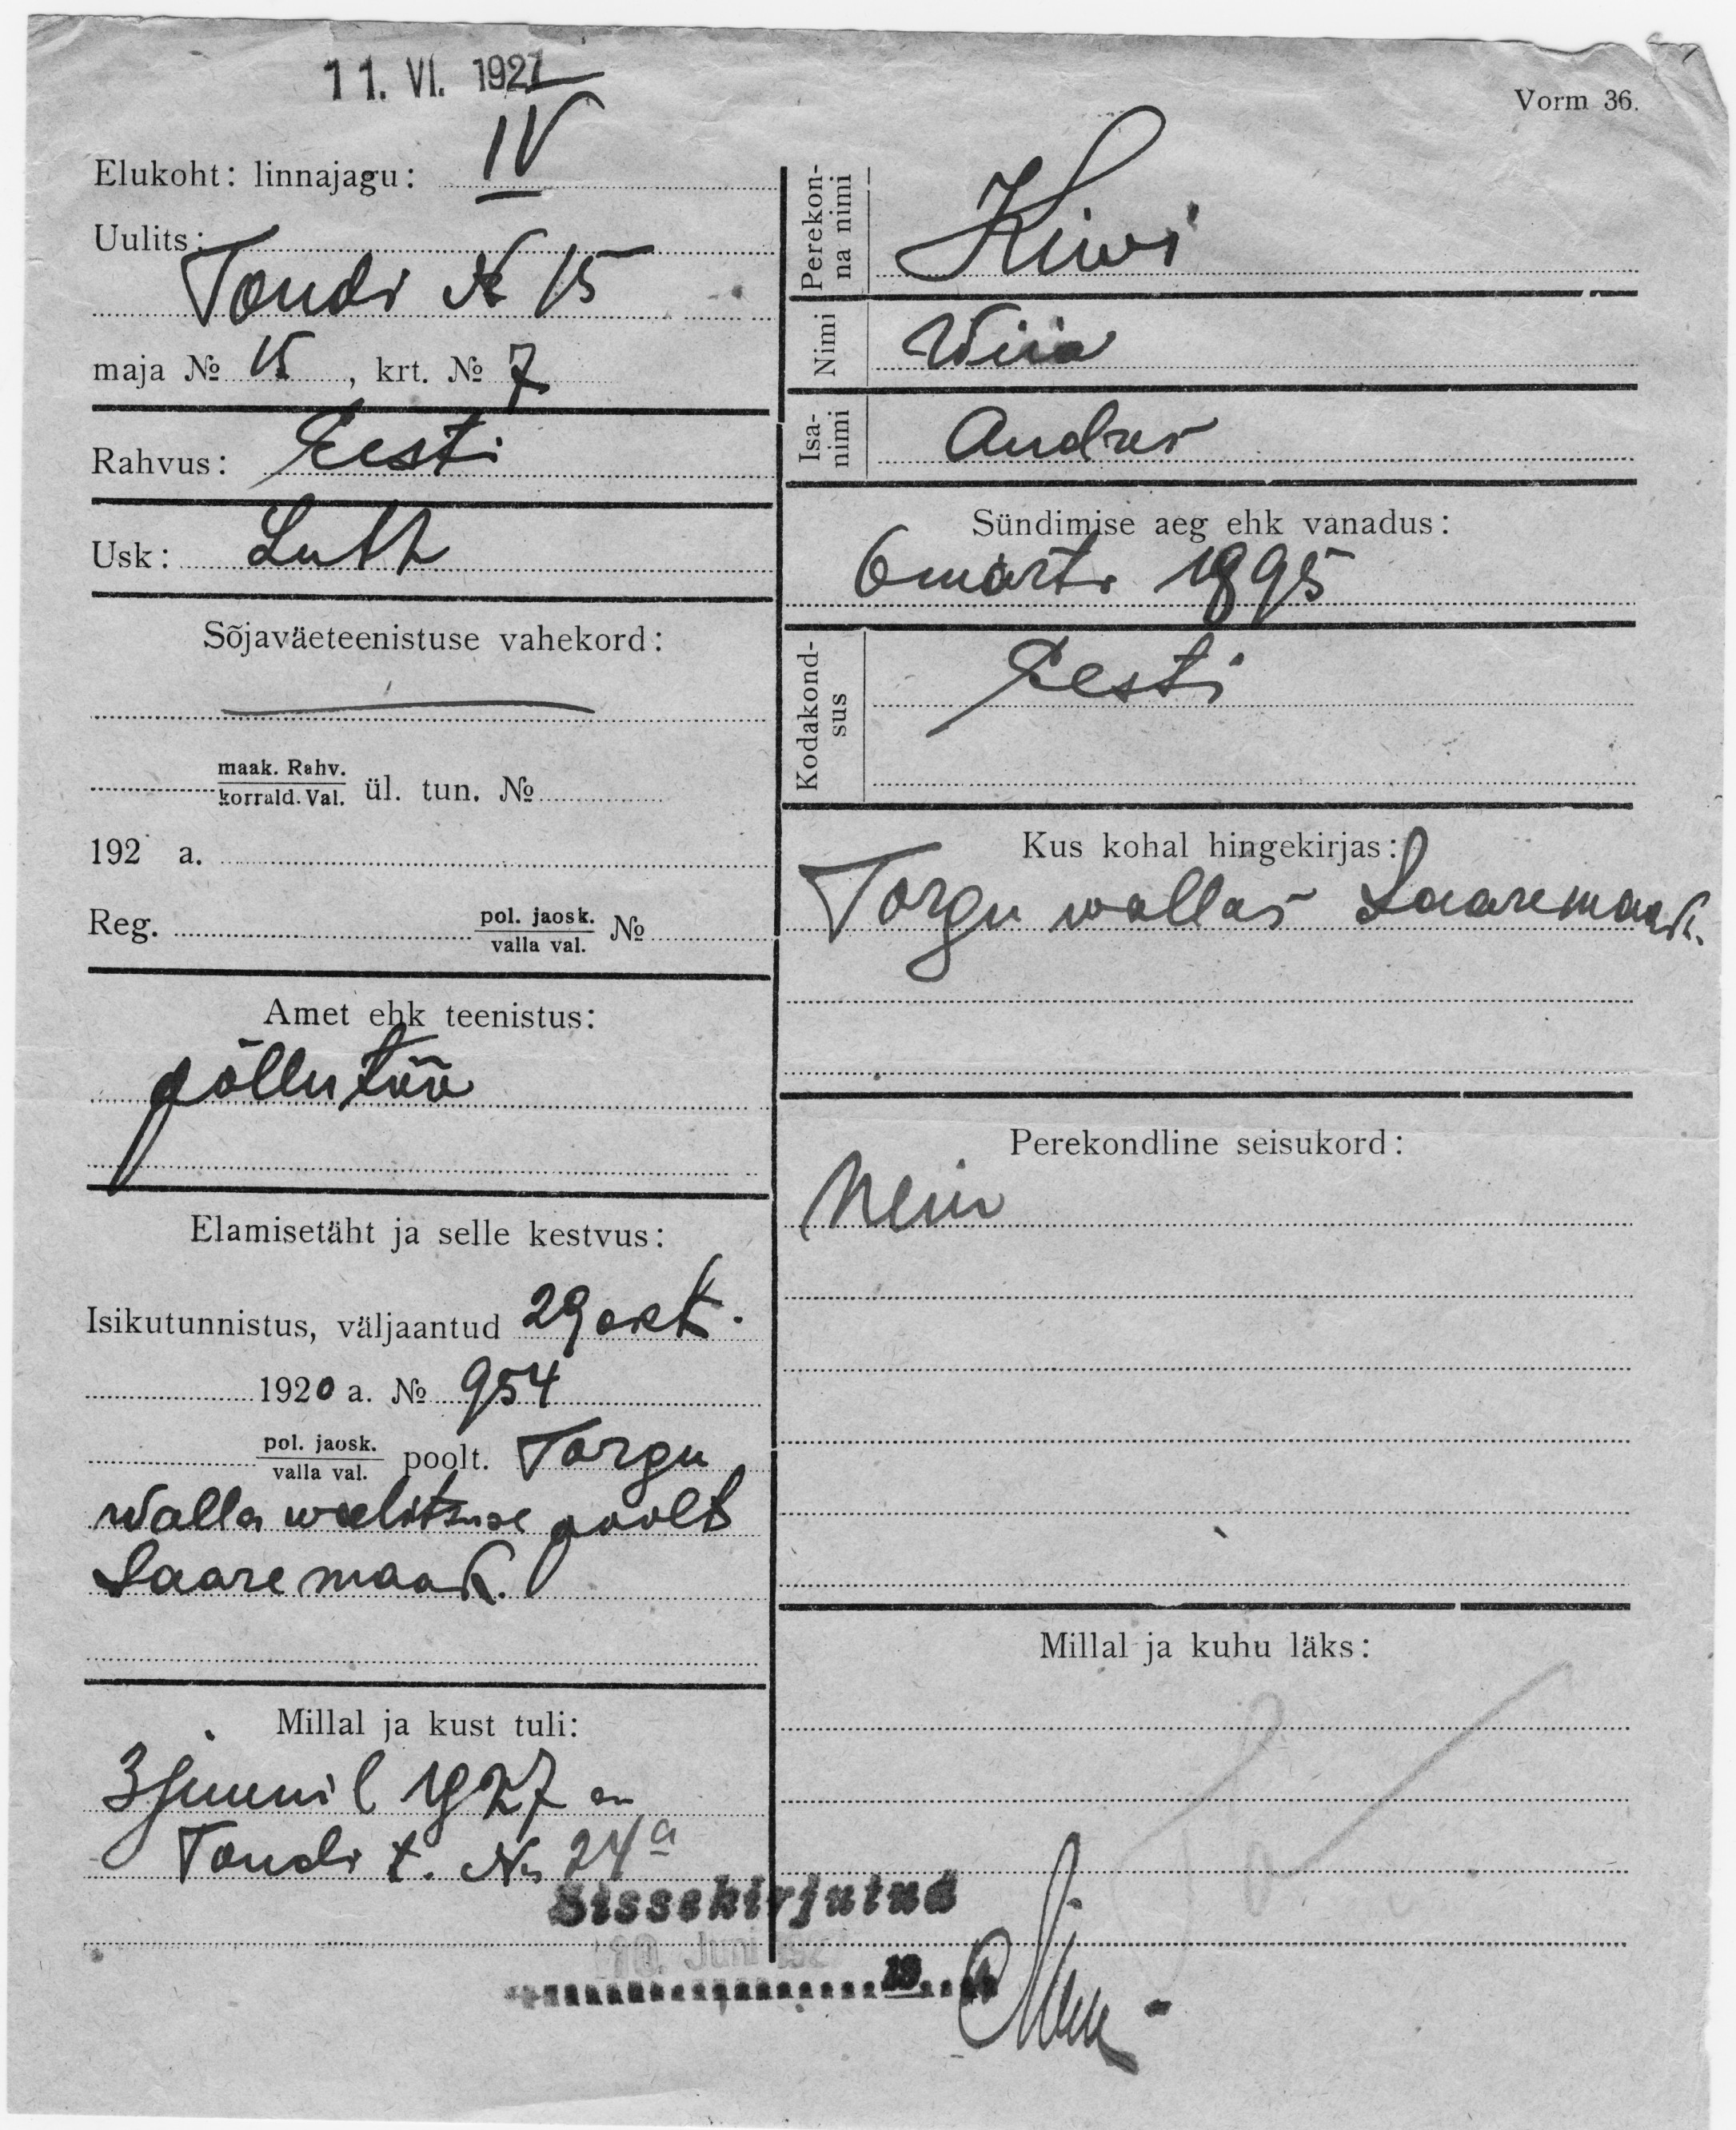 11. VI. 1927
Vorm 36.
Elukoht: linnajagu: IV
Uulits:
Tondi № 15
maja № 15, krt. № 7
Rahvus: Eesti
Usk: Luth
Sõjaväeteenistuse vahekord:
maak. Rahv.
korrald. Val. ül. tun. №
192 a.
Reg. pol. jaosk.
valla val. №
Amet ehk teenistus:
põllutöö
Elamisetäht ja selle kestvus:
Isikutunnistus, väljaantud 29 okt.
1920 a. № 954
pol. jaosk.
valla val. poolt. Torgu
walla walitsuse poolt
Saaremaak.
Millal ja kust tuli:
3 juunil 1927 a
Tondi t. № 24a
Perekon-
na nimi
Kiwi
Nimi
Wiia
Isa-
nimi
Andres
Sündimise aeg ehk vanadus:
6 märts 1895
Kodakond-
sus
Eesti
Kus kohal hingekirjas:
Torgu wallas Saaremaak.
Perekondline seisukord:
Neiu
Millal ja kuhu läks:
Sissekirjutud
10. Juni 192
19